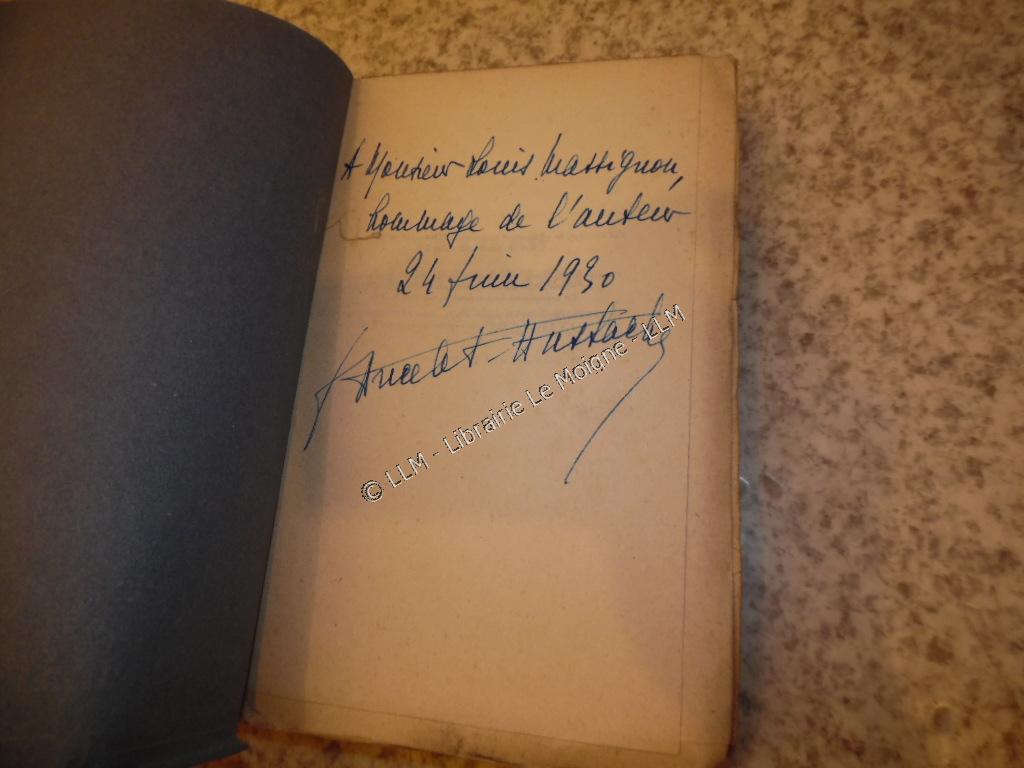 A Monsieur Louis Massignon,
hommage de l'auteur
24 juin 1930
J Ancelet-Hustache
© LLM - Librairie Le Moigne - LLM